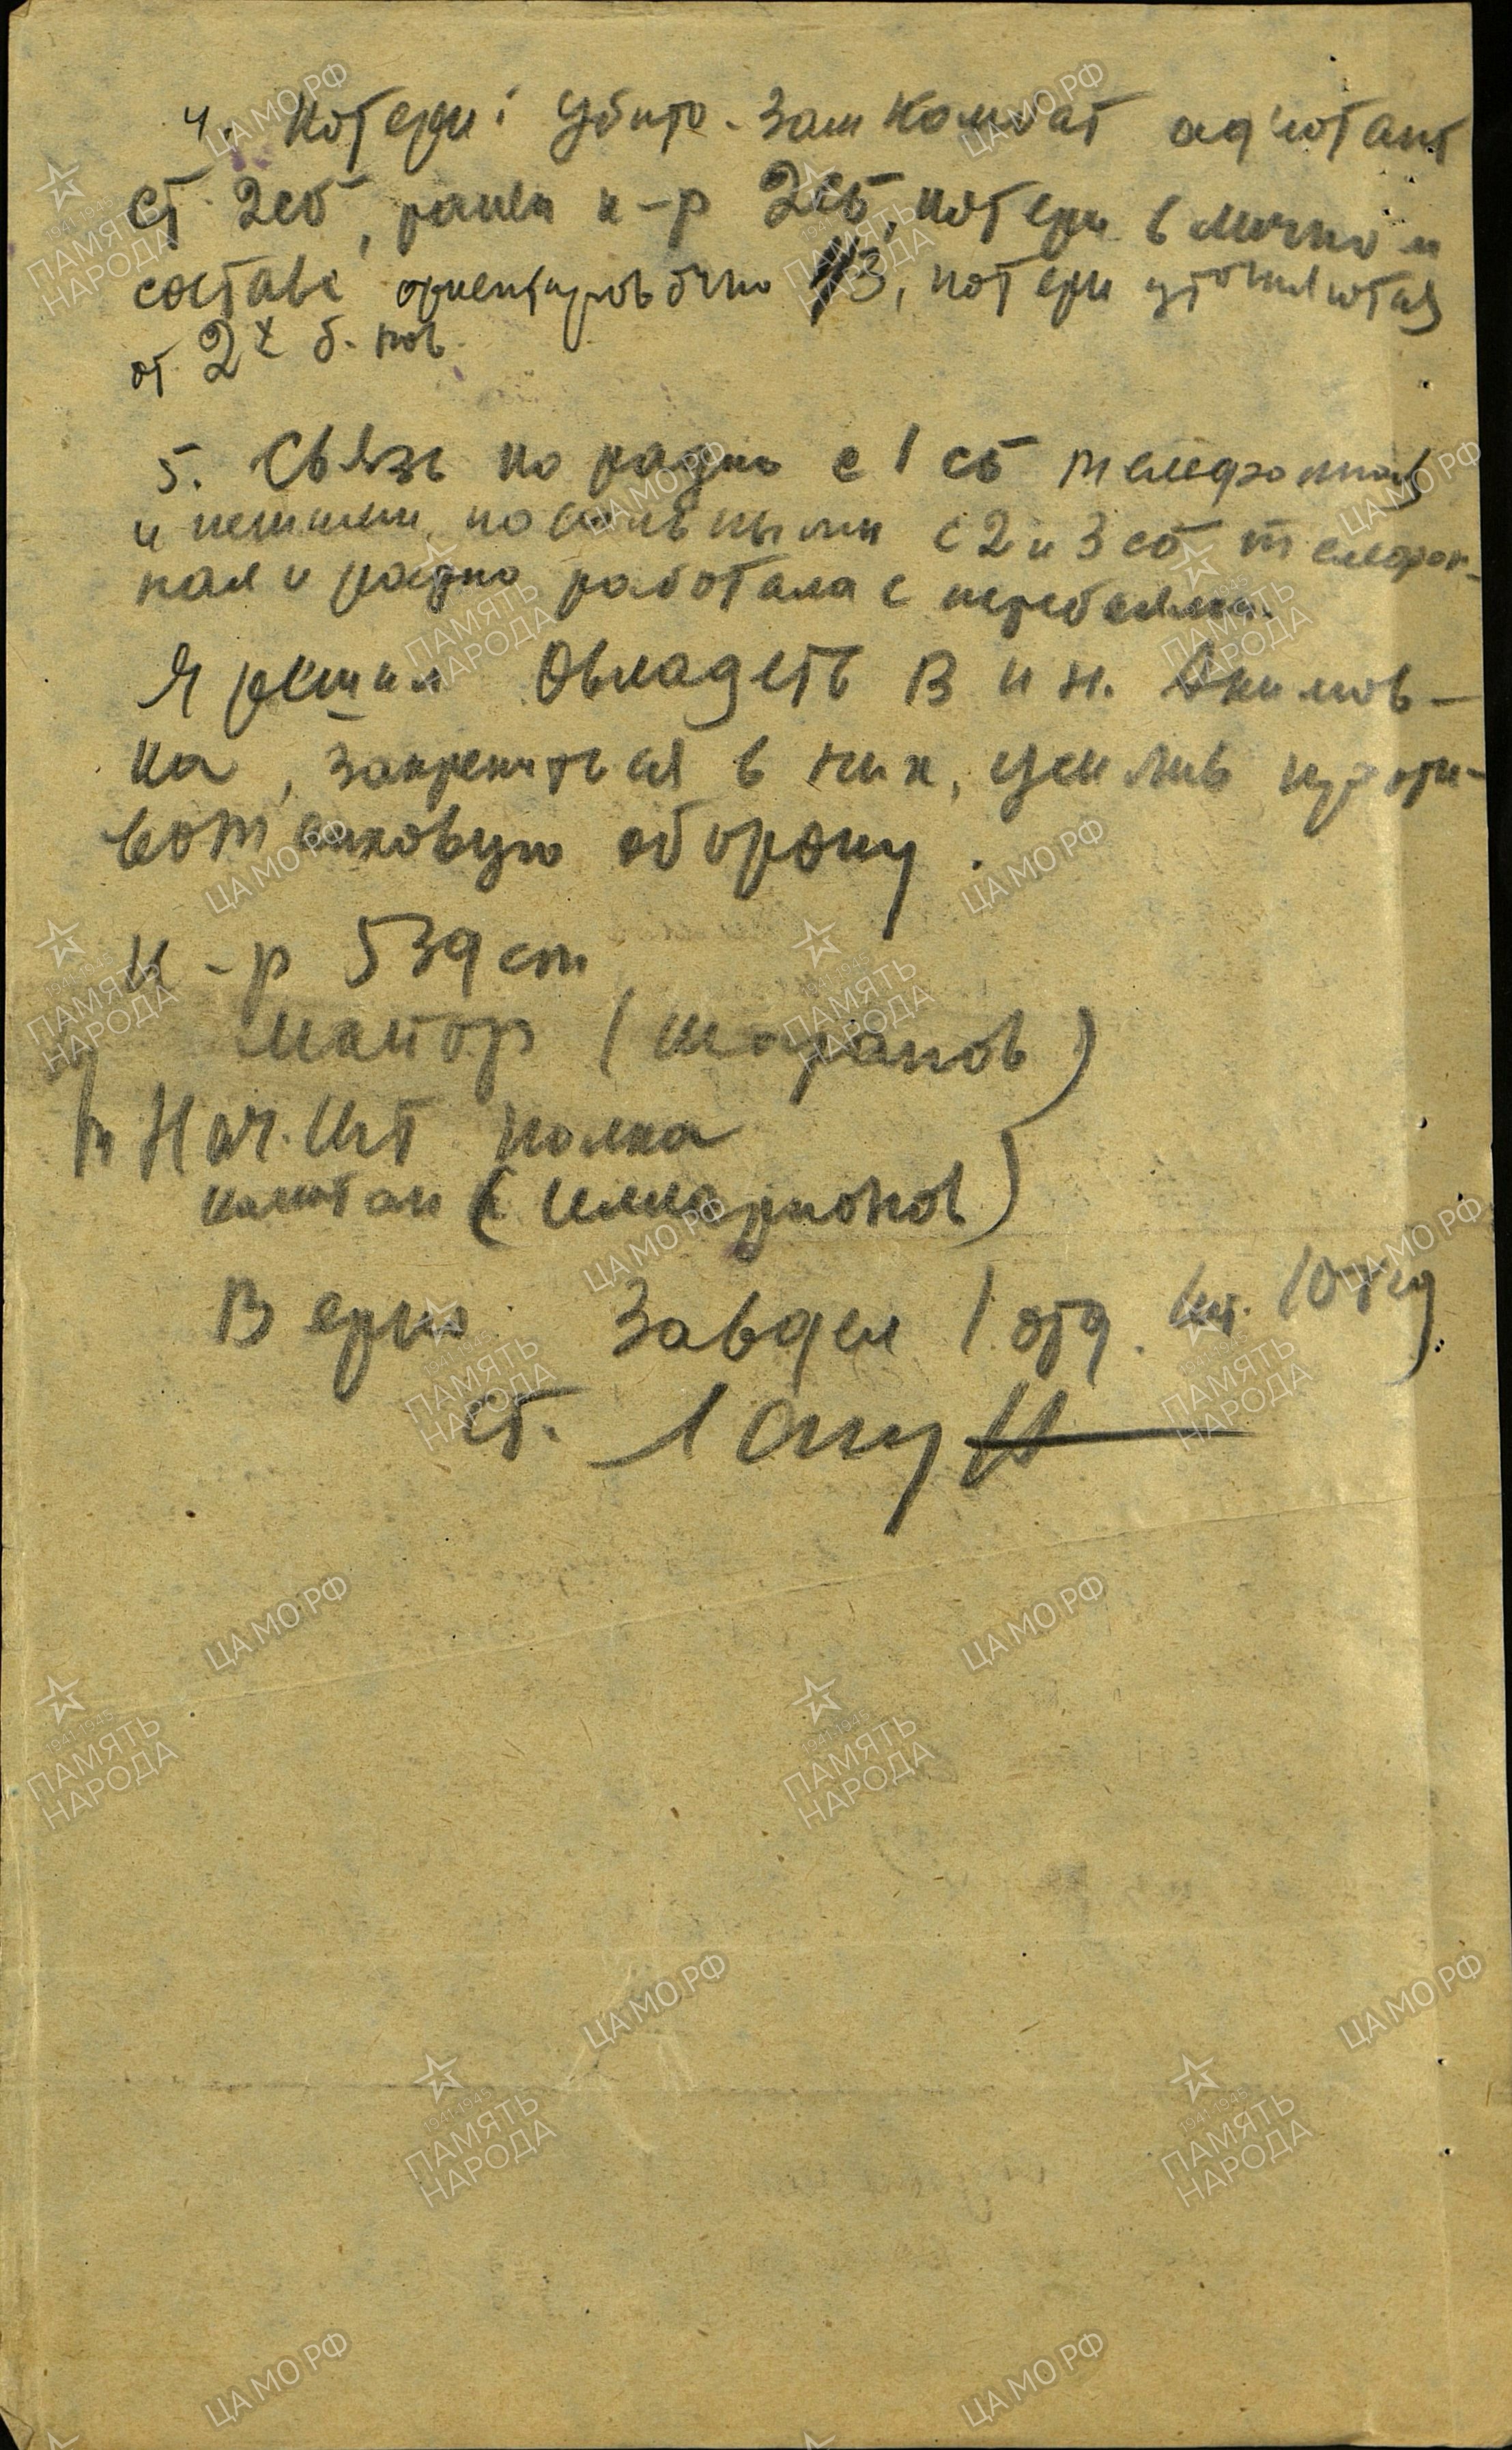 4. Потери: Убито - Зам Комбат ад'ютант
ст 2сб, ранен к-р 2сб, потери в личном
составе ориентировочно 3, потери уточняются
от 2х б-нов.
5. Связь по радио с 1 сб телефонная
и пешими посыльными с 2 и 3 сб телефон-
ная и радио работала с перебоями.
Я решил Овладеть В и Н. Акимов-
ка, закрепиться в них, усилив проти-
вотанковую оборону.
К-р 539 сп
Майор (Шарапов)
Нач. Шт полка
капитан (Илларионов)
Верно: Завдел 1 отд. шт.
ст.
ЦА МО РФ
1941-1945
ПАМЯТЬ
НАРОДА